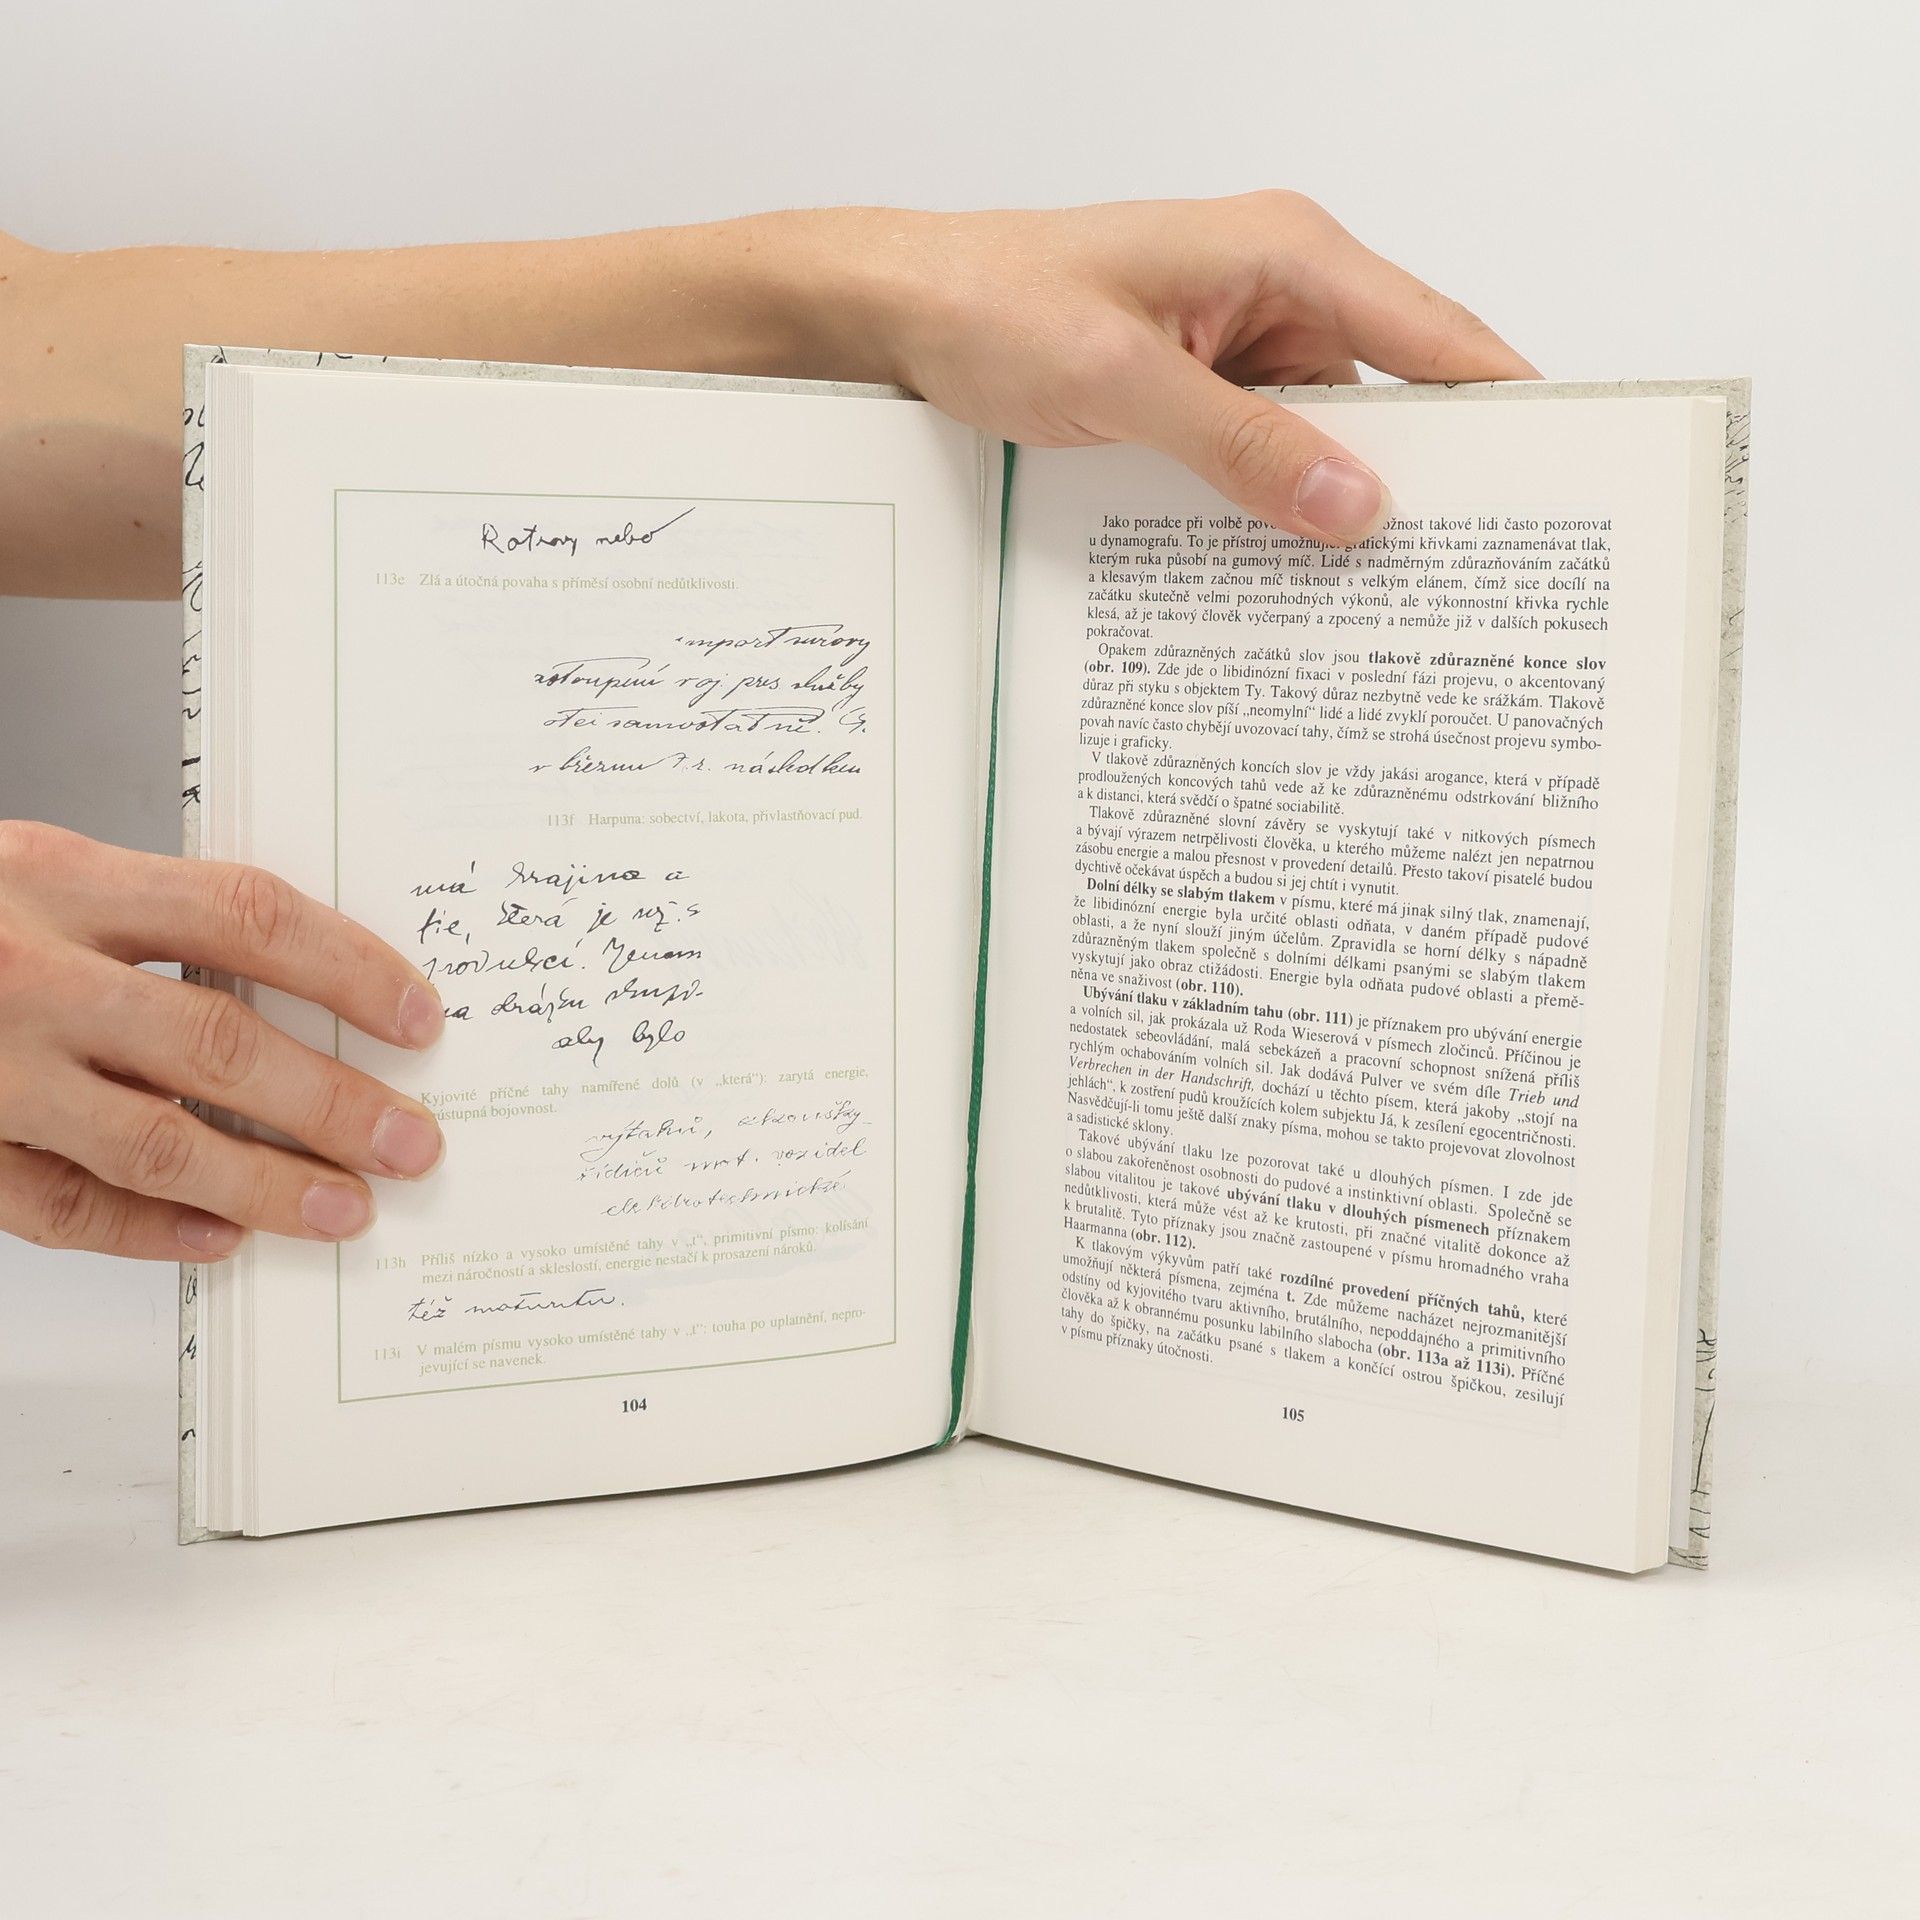 nebo
113e Zlá a útočná povaha s příměsí osobní nedůtklivosti.
import surovy
zastoupení v oj. pres. služby
samostatně.
v březnu t.r. následkem
113f Harpuna: sobectví, lakota, přivlastňovací pud.
má krajina a
fie, která je
produkcí.
na dráze
aby bylo
Kyjovité příčné tahy namířené dolů (v „která“): zarytá energie,
bojovnost.
výtahů,
řidičů mot. vozidel
elektrotechnické
113h Příliš nízko a vysoko umístěné tahy v „t“, primitivní písmo: kolísání
mezi náročností a skleslostí, energie nestačí k prosazení nároků.
též maturitu.
113i V malém písmu vysoko umístěné tahy v „t“: touha po uplatnění, nepro-
jevující se navenek.
104
Jako poradce při volbě takové lidi často pozorovat
u dynamografu. To je přístroj umožňující grafickými křivkami zaznamenávat tlak,
kterým ruka působí na gumový míč. Lidé s nadměrným zdůrazňováním začátků
a klesavým tlakem začnou míč tisknout s velkým elánem, čímž sice docílí na
začátku skutečně velmi pozoruhodných výkonů, ale výkonnostní křivka rychle
klesá, až je takový člověk vyčerpaný a zpocený a nemůže již v dalších pokusech
pokračovat.
Opakem zdůrazněných začátků slov jsou tlakově zdůrazněné konce slov
(obr. 109). Zde jde o libidinózní fixaci v poslední fázi projevu, o akcentovaný
důraz při styku s objektem Ty. Takový důraz nezbytně vede ke srážkám. Tlakově
zdůrazněné konce slov píší „neomylní“ lidé a lidé zvyklí poroučet. U panovačných
povah navíc často chybějí uvozovací tahy, čímž se strohá úsečnost projevu symbo-
lizuje i graficky.
V tlakově zdůrazněných koncích slov je vždy jakási arogance, která v případě
prodloužených koncových tahů vede až ke zdůrazněnému odstrkování bližního
a k distanci, která svědčí o špatné sociabilitě.
Tlakově zdůrazněné slovní závěry se vyskytují také v nitkových písmech
a bývají výrazem netrpělivosti člověka, u kterého můžeme nalézt jen nepatrnou
zásobu energie a malou přesnost v provedení detailů. Přesto takoví pisatelé budou
dychtivě očekávat úspěch a budou si jej chtít i vynutit.
Dolní délky se slabým tlakem v písmu, které má jinak silný tlak, znamenají,
že libidinózní energie byla určité oblasti odňata, v daném případě pudové
oblasti, a že nyní slouží jiným účelům. Zpravidla se horní délky s nápadně
zdůrazněným tlakem společně s dolními délkami psanými se slabým tlakem
vyskytují jako obraz ctižádosti. Energie byla odňata pudové oblasti a přemě-
něna ve snaživost (obr. 110).
Ubývání tlaku v základním tahu (obr. 111) je příznakem pro ubývání energie
a volních sil, jak prokázala už Roda Wieserová v písmech zločinců. Příčinou je
nedostatek sebeovládání, malá sebekázeň a pracovní schopnost snížená příliš
rychlým ochabováním volních sil. Jak dodává Pulver ve svém díle Trieb und
Verbrechen in der Handschrift, dochází u těchto písem, která jakoby „stojí na
jehlách“, k zostření pudů kroužících kolem subjektu Já, k zesílení egocentričnosti.
Nasvědčují-li tomu ještě další znaky písma, mohou se takto projevovat zlovolnost
a sadistické sklony.
Takové ubývání tlaku lze pozorovat také u dlouhých písmen. I zde jde
o slabou zakořeněnost osobnosti do pudové a instinktivní oblasti. Společně se
slabou vitalitou je takové ubývání tlaku v dlouhých písmenech příznakem
nedůtklivosti, která může vést až ke krutosti, při značné vitalitě dokonce až
k brutalitě. Tyto příznaky jsou značně zastoupené v písmu hromadného vraha
Haarmanna (obr. 112).
K tlakovým výkyvům patří také rozdílné provedení příčných tahů, které
umožňují některá písmena, zejména t. Zde můžeme nacházet nejrozmanitější
odstíny od kyjovitého tvaru aktivního, brutálního, nepoddajného a primitivního
člověka až k obrannému posunku labilního slabocha (obr. 113a až 113i). Příčné
tahy do špičky, na začátku psané s tlakem a končící ostrou špičkou, zesilují
v písmu příznaky útočnosti.
105